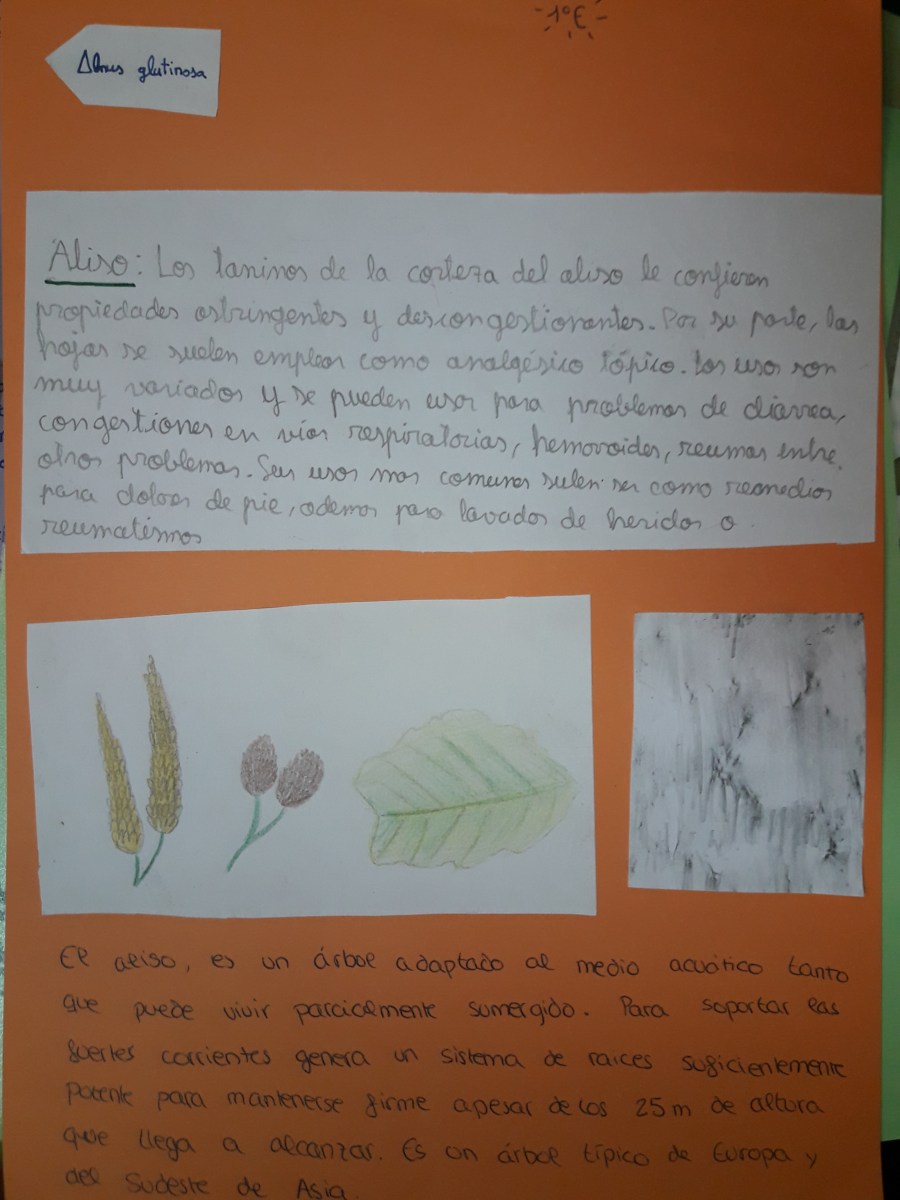 1ºE
Alnus glutinosa
Aliso: Los taninos de la corteza del aliso le confieren
propiedades astringentes y descongestionantes. Por su parte, las
hojas se suelen emplear como analgésico tópico. Los usos son
muy variados y se pueden usar para problemas de diarrea,
congestiones en vías respiratorias, hemoroides, reumas entre
otros problemas. Sus usos mas comunes sulen ser como remedios
para dolores de pie, ademas para lavados de heridas o
reumatismos
El aliso, es un árbol adaptado al medio acuático tanto
que puede vivir parcialmente sumergido. Para soportar las
fuertes corrientes genera un sistema de raices suficientemente
potente para mantenerse firme apesar de los 25m de altura
que llega a alcanzar. Es un árbol típico de Europa y
del Sudeste de Asia.